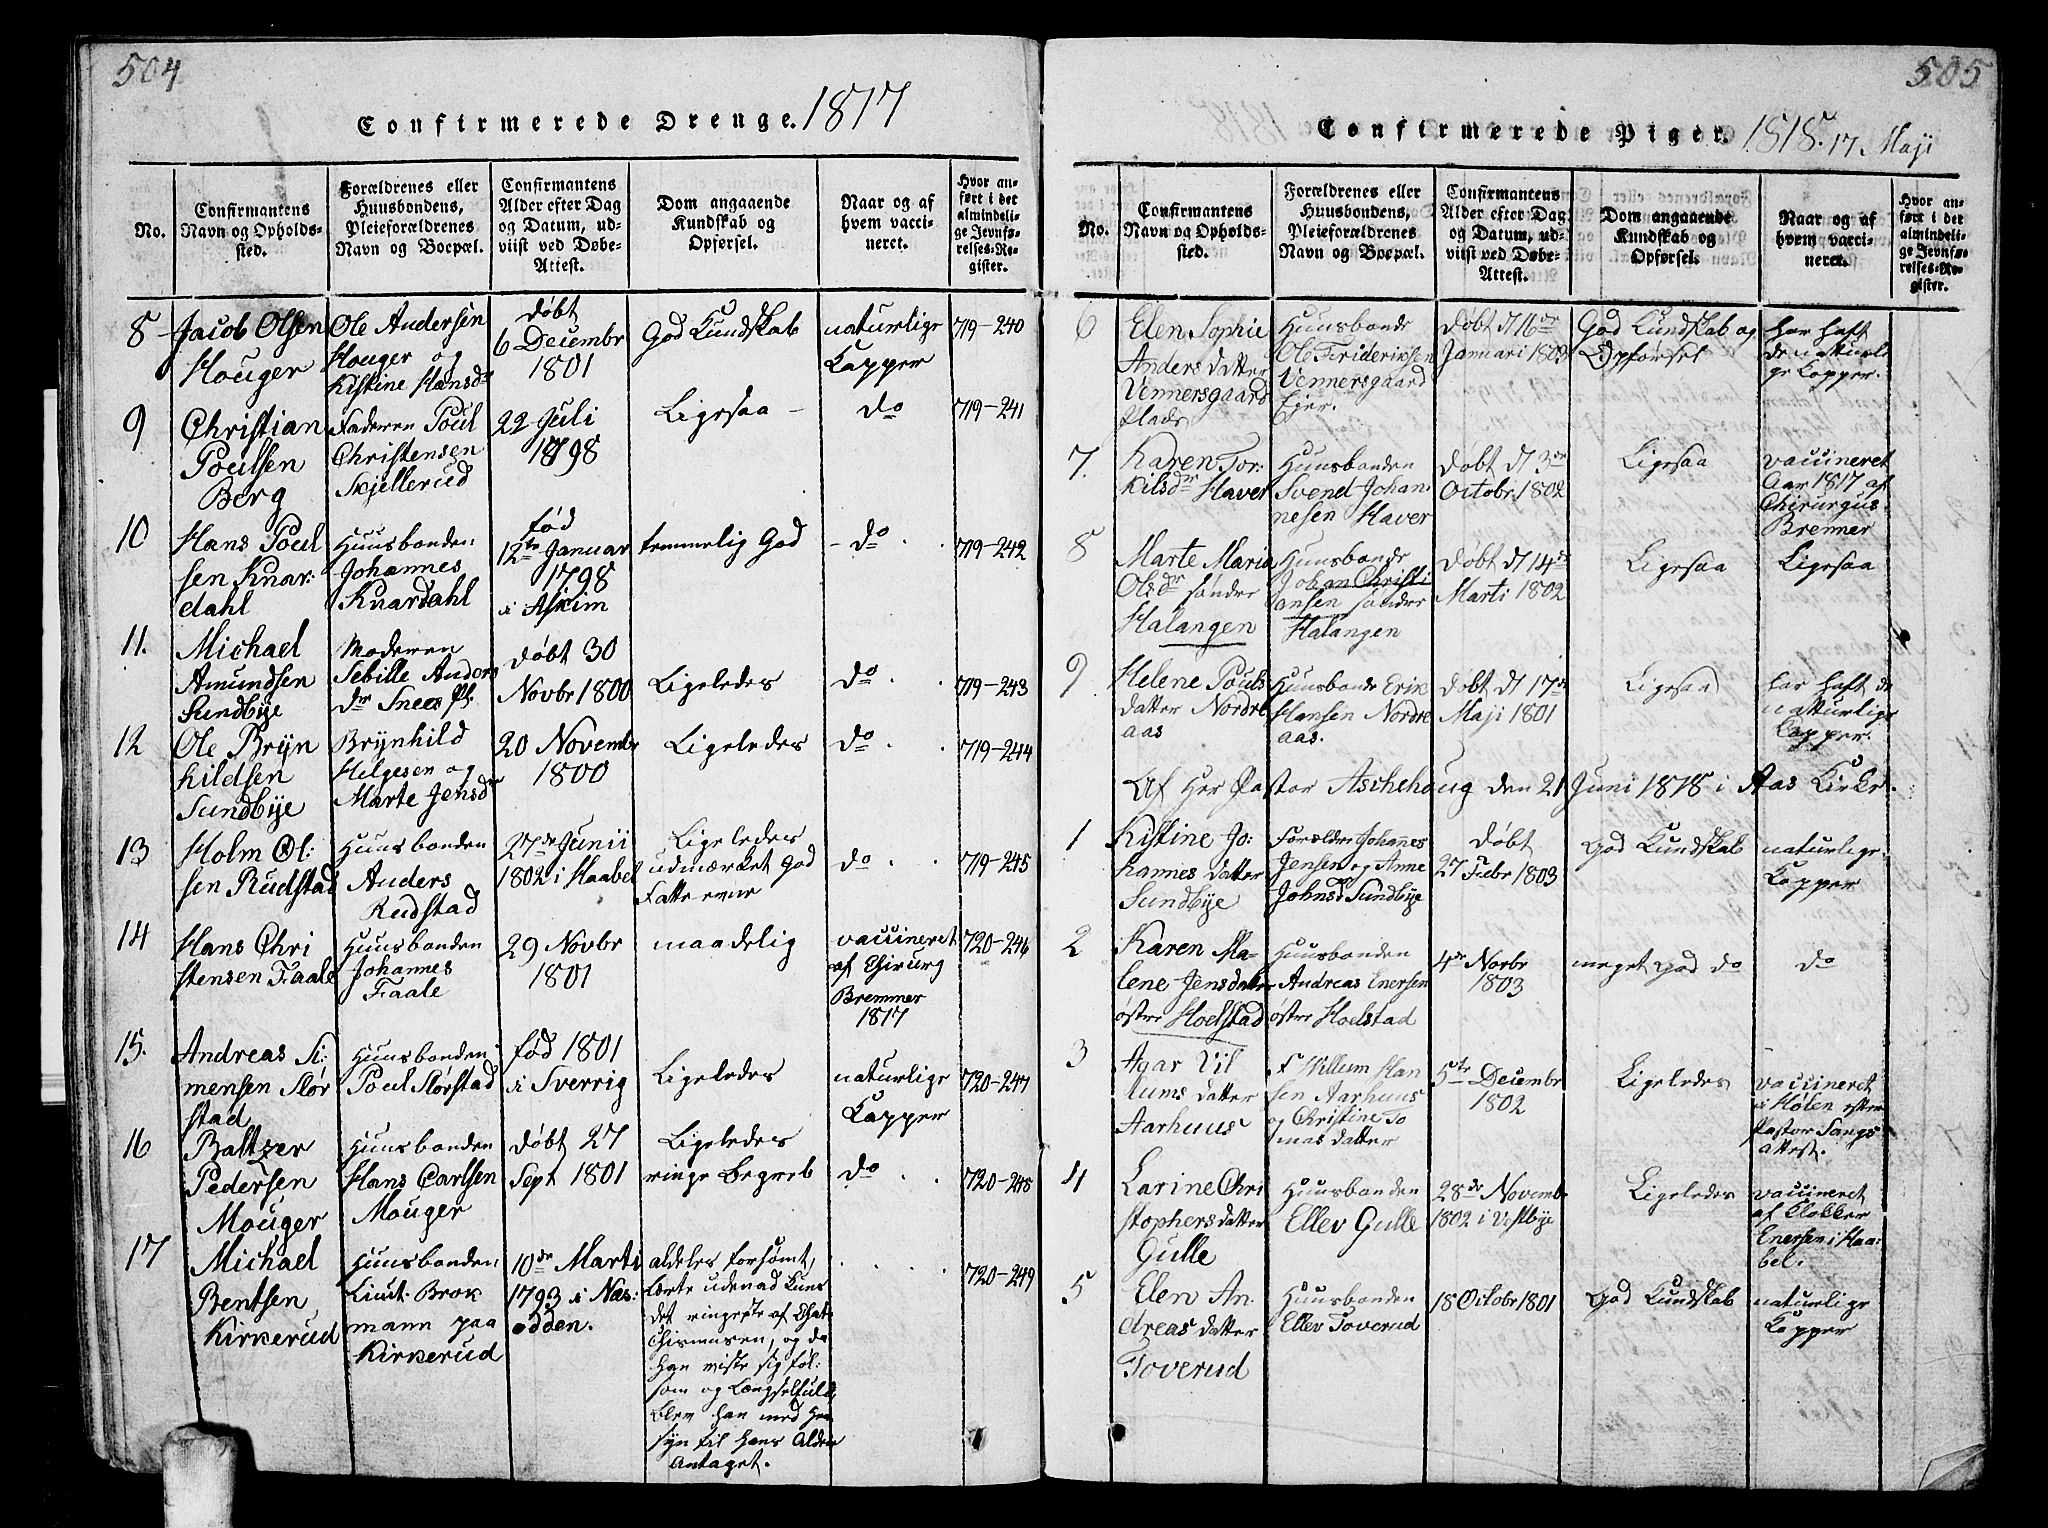 504
Confirmerede Drenge. 1817
No.
Confirmantens
Navn og Opholds-
sted.
Forældrenes eller
Huusbondens,
Pleieforældrenes
Navn og Boepæl.
Confirmantens
Alder efter Dag
og Datum, ud-
viist ved Døbe-
Attest.
Dom angaaende
Kundskab og
Opførsel.
Naar og af
hvem vacci-
neret.
Hvor an-
ført i det
almindeli-
ge Jevnfø-
relses-Re-
gister.
8
Jacob Olsen
Houger
Ole Andersen
Houger og
Kistine Hansdr
døbt
6 Decembr
1801
God Kundskab
naturlige
Kopper
719-240
9
Christian
Poulsen
Berg
Faderen Poul
Christensen
Skjellerud
22 Juli
1798
Ligesaa
do
719-241
10
Hans Poul
sen Knar:
dahl
Huusbonden
Johannes
Knardahl
fød
12te Januar
1798
i Askim
temmelig God
do
719-242
11.
Michael
Amundsen
Sundbye
Moderen
Sebille Anders
dr Snees Pl.
døbt 30
Novbr 1800
Ligeledes
do
719-243
12
Ole Bryn
kildsen
Sundbye
Brynhild
Helgesen og
Marte Jensdr
20 Novembr
1800
Ligeledes
do
719-244
13
Holm Ol:
sen Rudstad
Huusbonden
Anders
Rudstad
27de Junii
1802 i Haabel
Ligeledes
udmærket God
Fatteevne
do
719-245
14
Hans Chri
stensen Faale
Huusbonden
Johannes
Faale
29 Novbr
1801
maadelig
vaccineret
af Chirurg
Bremmer
1817
720-246
15.
Andreas Si:
mensen Slør
stad
Huusbonden
Poul Slørstad
fød 1801
i Sverrig
Ligeledes
naturlige
Kopper
720-247
16
Baltzer
Pedersen
Mouger
Huusbonden
Hans Carlsen
Mouger
døbt 27
Sept 1801
Ligeledes
ringe Begreb
do
720-248
17
Michael
Bentsen
Kirkerud
Huusbonden
Liut. Brok
mann paa
Kirkerud
10de Marti
1793 i Næs:
odden.
aldeles forsømt,
lærte udenad kuns
det ringeste af Chate
chismusen, og da
han viste sig føl:
som og Længselfuld,
blev han med Hen
syn til hans Alder
Antaget.
720-249
505
Confirmerede Piger. 1818. 17 Maji
No.
Confirmantens
Navn og Opholds-
sted.
Forældrenes eller
Huusbondens,
Pleieforældrenes
Navn og Boepæl.
Confirmantens
Alder efter Dag
og Datum, ud-
viist ved Døbe-
Attest.
Dom angaaende
Kundskab og
Opførsel.
Naar og af
hvem vacci-
neret.
Hvor an-
ført i det
almindeli-
ge Jevnfø-
relses-Re-
gister.
6
Elen Sophie
Anders datter
Vennersgaard
Plads
Huusbonde
Ole Frideriksen
Vennersgaard
Ejer.
Døbt d 16de
Januari 1803
God Kundskab og
Opførsel
har haft
de naturli
ge Kopper.
7.
Karen Tor:
kilsdr Haver
Huusbonden
Svend Johan
nesen Haver
Døbt d 3de
Octobr 1802
Ligesaa
vaccineret
Aar 1817 af
Chirurgus
Bremer
8
Marte Maria
Olsdr søndre
Halangen
Huusbonde
Johan Christi
ansen søndre
Halangen
Døbt d 14de
Marti 1802
Ligesaa
Ligesaa
9
Helene Pouls
datter Nordre
aas
Huusbonde Erik
Hansen Nordre
aas.
døbt d 17de
Maji 1801
Ligesaa
har haft de
naturlige
Kopper.
Af Her Pastor Aschehoug den 21 Juni 1818 i Aas Kirke.
1
Kistine Jo:
hannes datter
Sundbye
Forældre Johannes
Jensen og Anne
Johnsdr Sundbye
Døbt
27 Febr 1803
God Kundskab
naturlige
Kopper
2
Karen Ma-
lene Jensdatter
østre Hoelstad
Huusbonden
Andreas Enersen
østre Hoelstad
4de Novbr
1803
meget God do
do
3
Agar Vil
lums datter
Aarhuus
F Willum Han
sen Aarhuus
og Christine To
mas datter
5te Decembr
1802
Ligeledes
vaccineret
i Hølen efter
Pastor Sangs
attest.
4
Larine Chri
stophers datter
Gulle
Huusbonden
Ellev Gulle
28de Novembr
1802 i Vestbye
Ligeledes
vaccineret
af Klokker
Enersen i Haa:
bel.
5
Elen An
dreas datter
Toverud
Huusbonden
Ellev Toverud
18 Octobr 1801
God Kundskab
naturlige
Kopper